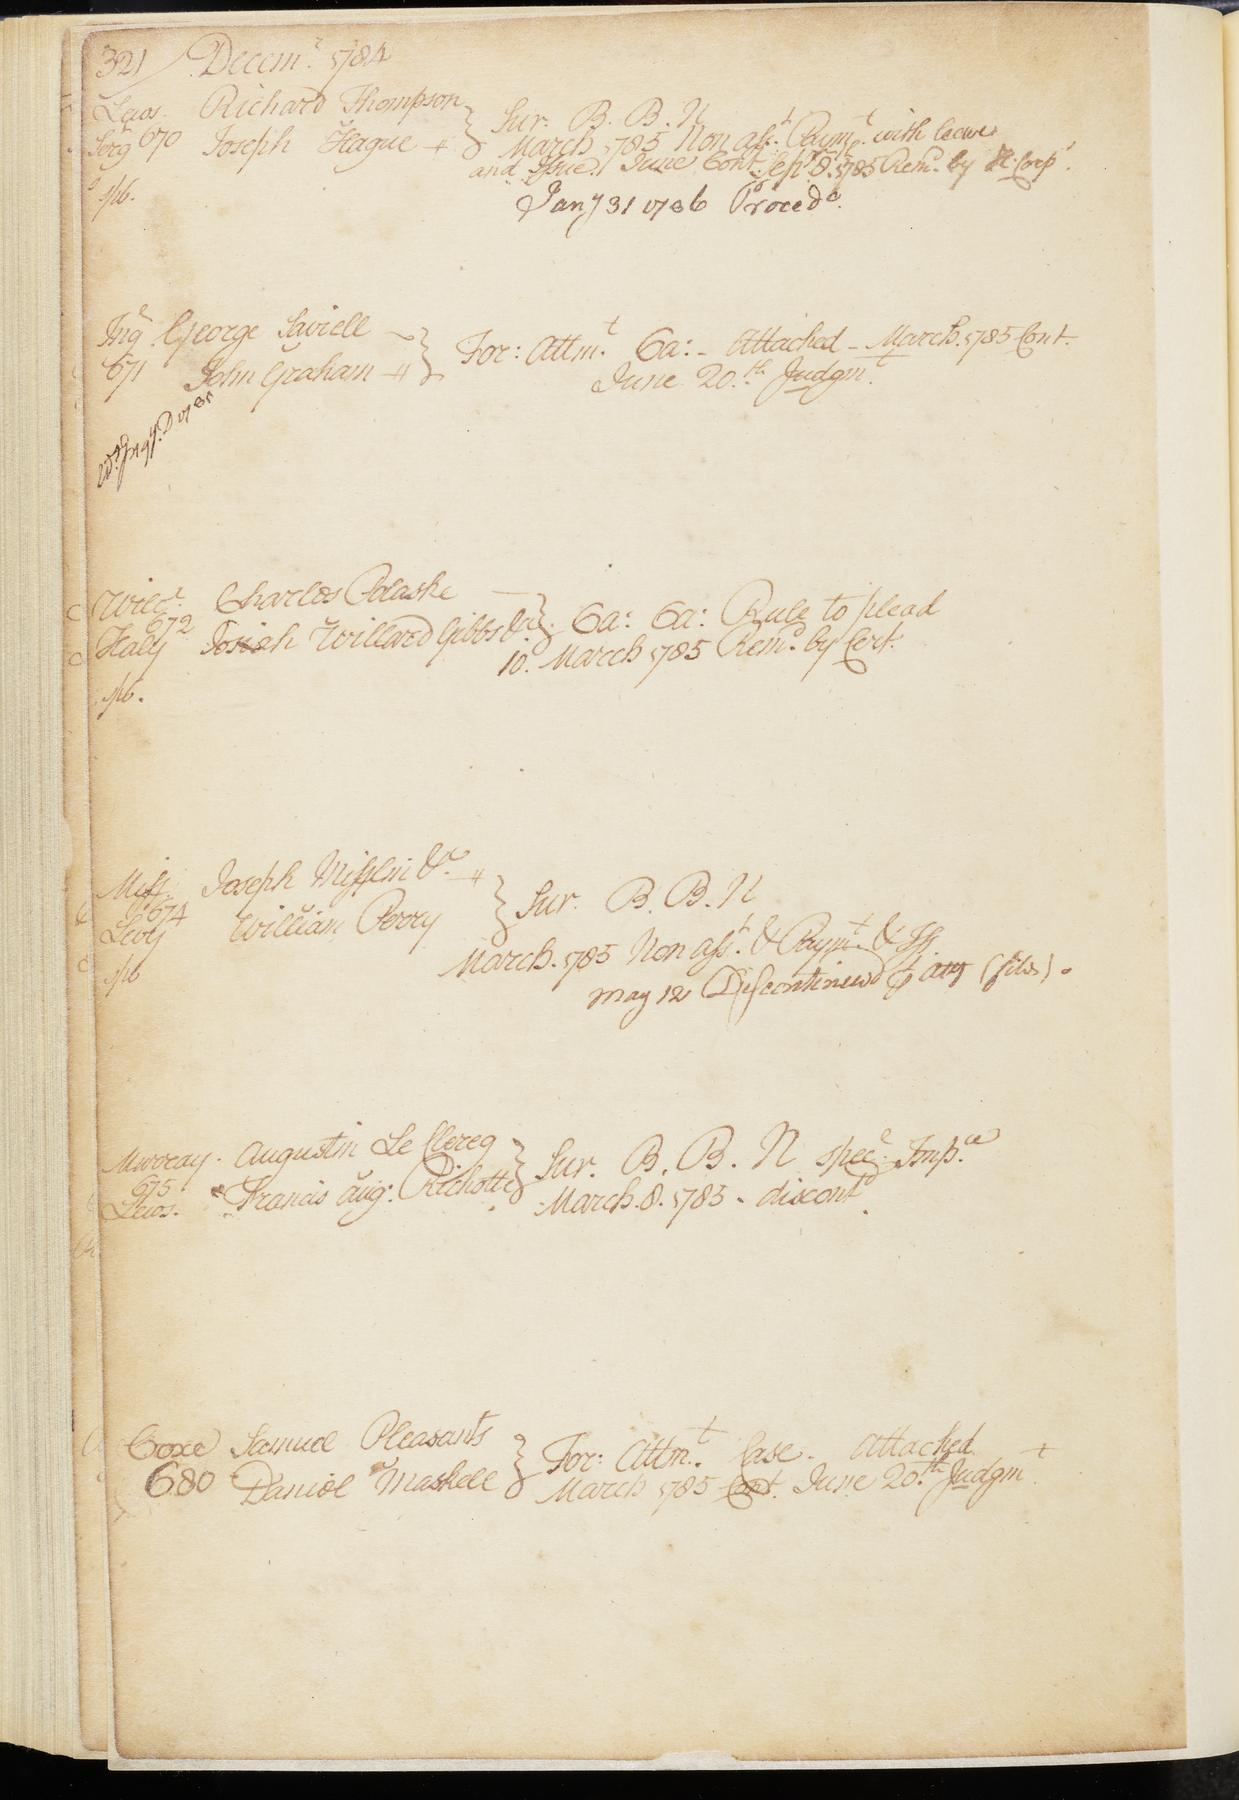 321 / Decem.r 1784
Lewis. Richard Thompson
Serg 670 Joseph Hague } Sur. B. B. N
March 1785 Non ass.t Paym.t with leave
and Issue. June Cont. Sep.r 8. 1785 Rem.d by H. Corp.s
Jan.y 31 1786 Proced.o
Ing.l George Saviell
671 John Graham } For: Attm.t Ca: - Attached - March. 1785 Cont.
June 20.th Judgm.t
Wilc.s Charles Polaske
672
Haly Josiah Willard Gibbs &a } Ca: Ca: Rule to plead
10. March 1785 Rem.d by Cert.
Miff. Joseph Mifflin &a
674
Levy William Perry } Sur. B. B. N
March. 1785 Non ass.t & Paym.t & Iss
May 12 Discontinued ⅌ atty (filed).
Murray. Augustin Le Clercq
675
Lewis. Francis Aug: Richotte } Sur. B. B. N spec.l Imp.ce
March. 8. 1785 - discont.d
Coxe Samuel Pleasants
680 Daniel Maskell } For: Attm.t Case - Attached
March 1785 Cont. June 20.th Judgm.t